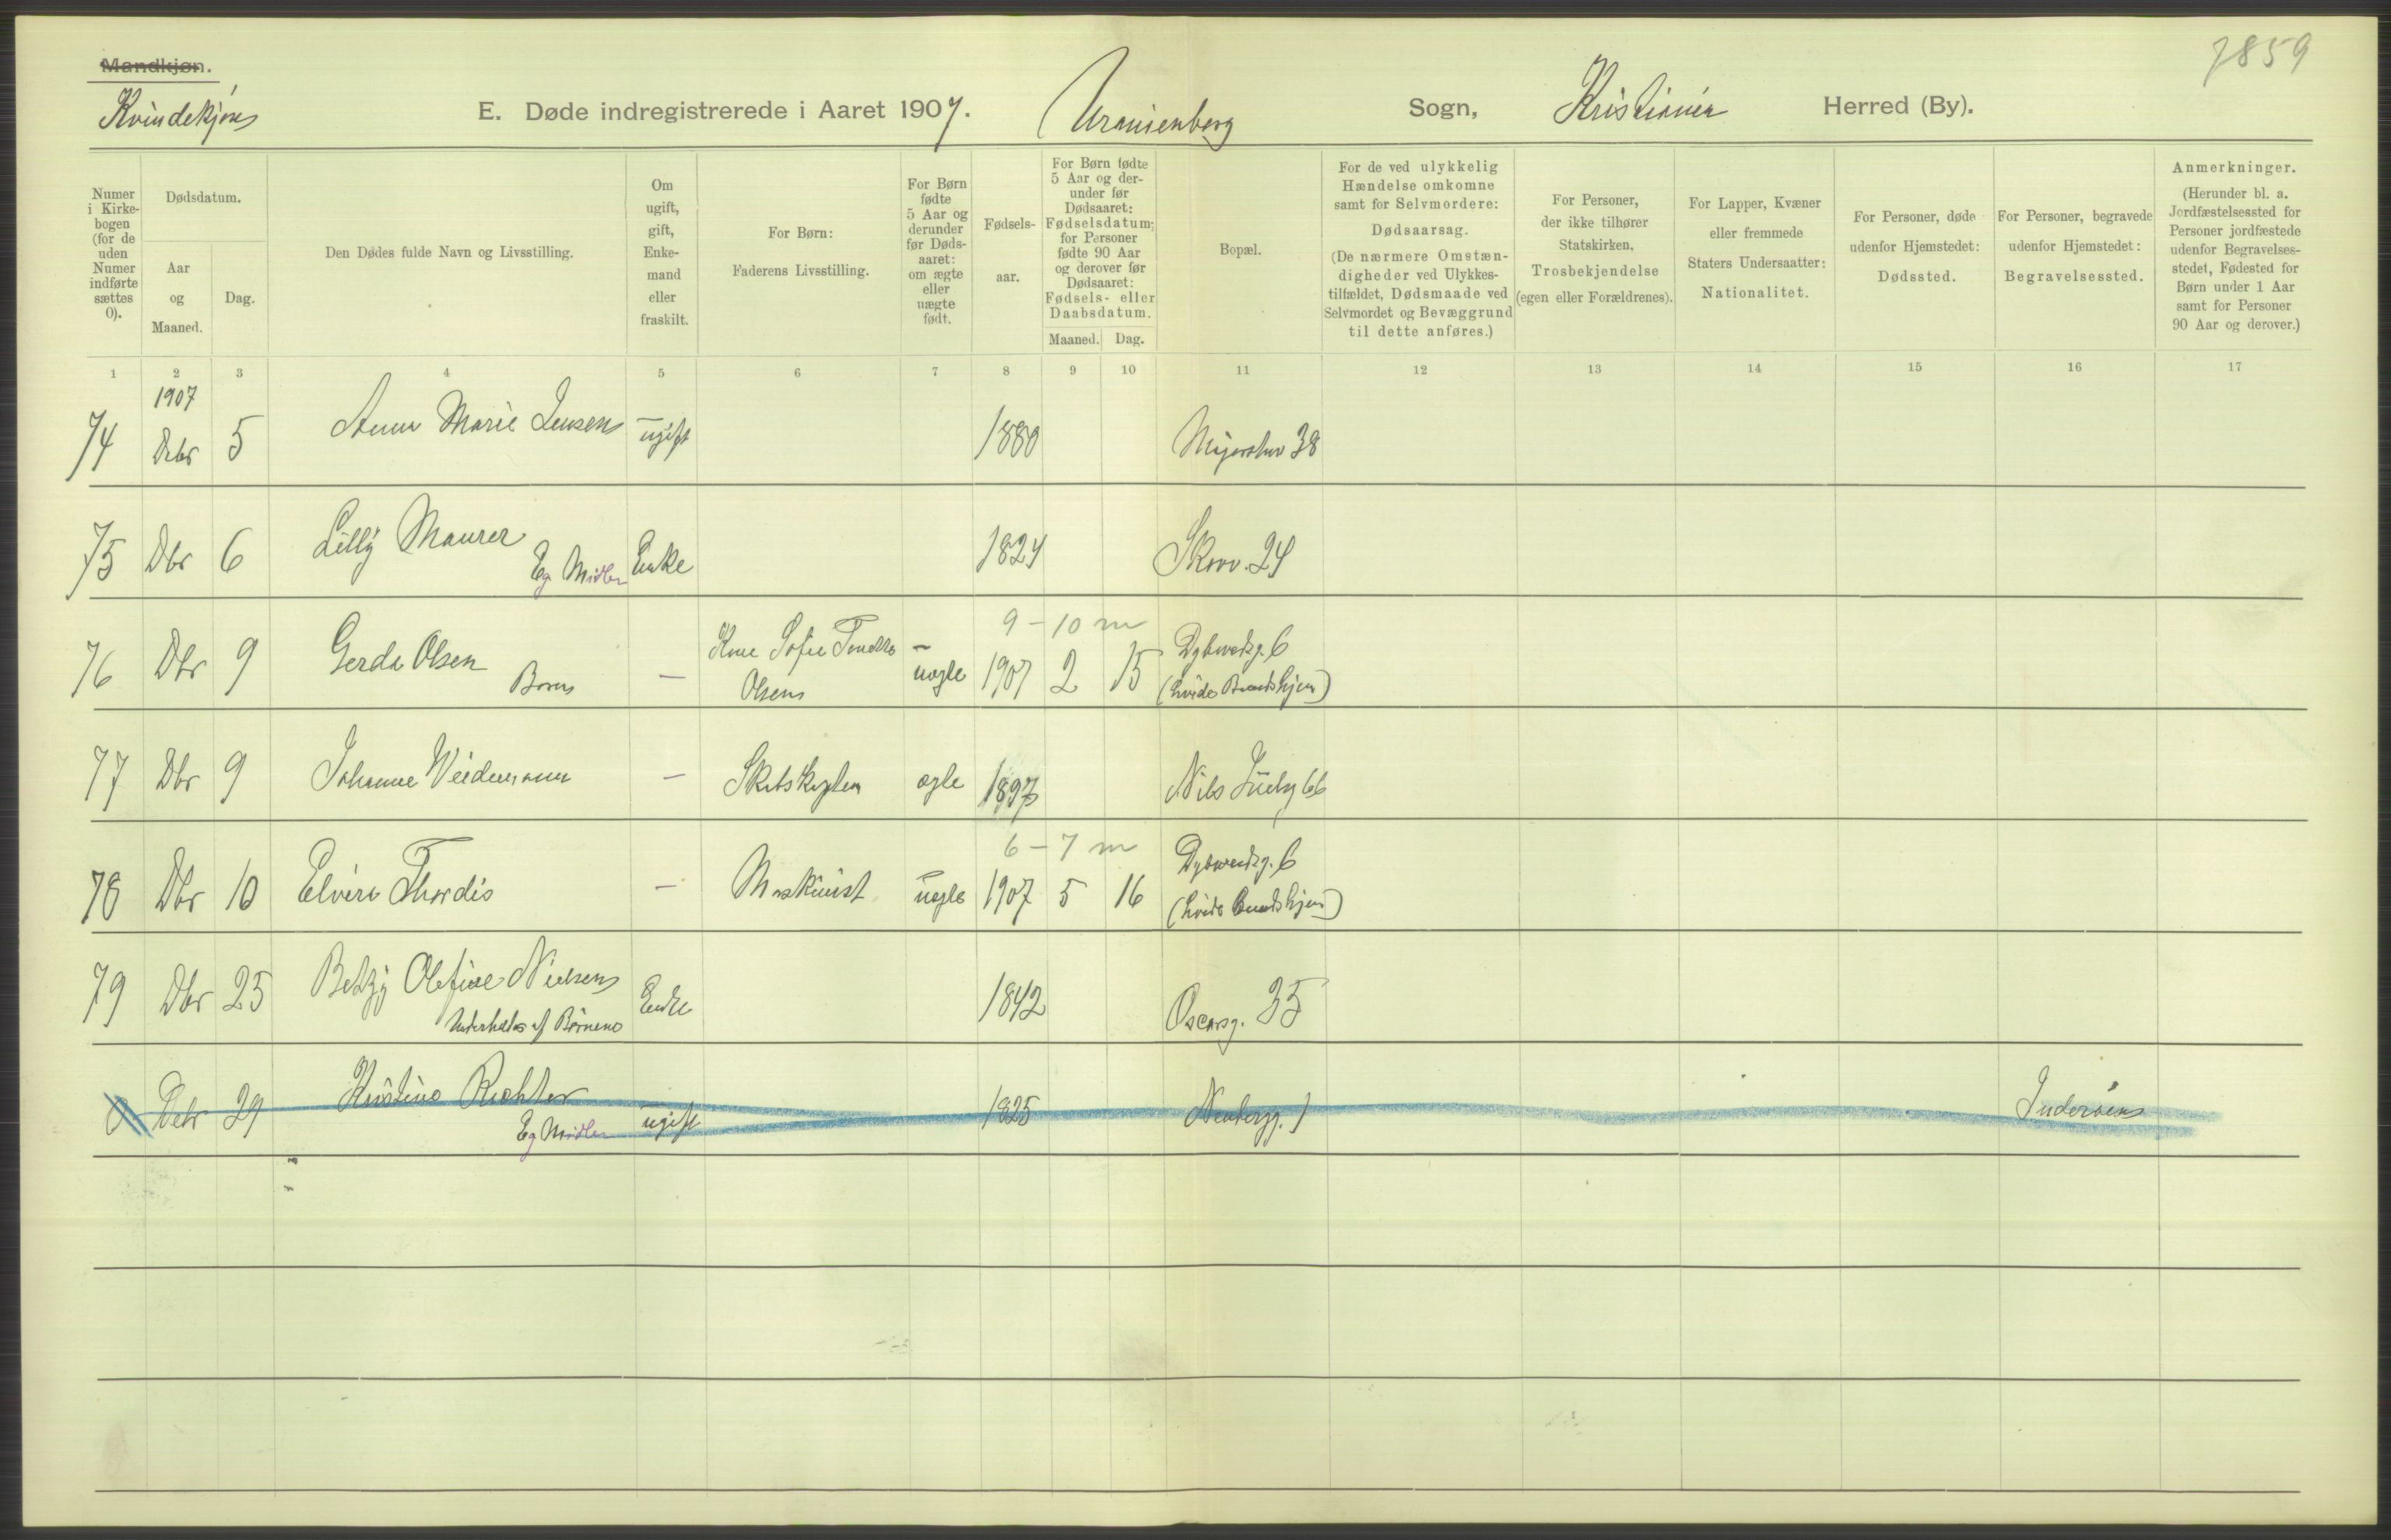 7859
Mandkjøn.
Kvindekjøn
E. Døde indregistrerede i Aaret 1907. Uranienborg Sogn, Kristiania Herred (By).
Numer i Kirkebogen (for de uden Numer indførte sættes 0).
Dødsdatum.
Aar og Maaned.
Dag.
Den Dødes fulde Navn og Livsstilling.
Om ugift, gift, Enkemand eller fraskilt.
For Børn: Faderens Livsstilling.
For Børn fødte 5 Aar og derunder før Dødsaaret: om ægte eller uægte født.
Fødselsaar.
For Børn fødte 5 Aar og derunder før Dødsaaret: Fødselsdatum; for Personer fødte 90 Aar og derover før Dødsaaret: Fødsels- eller Daabsdatum.
Maaned. Dag.
Bopæl.
For de ved ulykkelig Hændelse omkomne samt for Selvmordere: Dødsaarsag. (De nærmere Omstændigheder ved Ulykkestilfældet, Dødsmaade ved Selvmordet og Bevæggrund til dette anføres.)
For Personer, der ikke tilhører Statskirken, Trosbekjendelse (egen eller Forældrenes).
For Lapper, Kvæner eller fremmede Staters Undersaatter: Nationalitet.
For Personer, døde udenfor Hjemstedet: Dødssted.
For Personer, begravede udenfor Hjemstedet: Begravelsessted.
Anmerkninger. (Herunder bl. a. Jordfæstelsessted for Personer jordfæstede udenfor Begravelsesstedet, Fødested for Børn under 1 Aar samt for Personer 90 Aar og derover.)
1 2 3 4 5 6 7 8 9 10 11 12 13 14 15 16 17
1907
74 Debr 5 Anna Marie Jensen ugift 1880 38
75 Dbr 6 Lilly Maurer Enke 1824 Skovv. 24
Eg Midler
9-10 m
76 Dbr 9 Gerda Olsen — Sofie uegte 1907 2 15 Dybwadsg. 6
Barn Olsen
77 Dbr 9 Johanne Weidemann — egte 1897 Nils Juelsg 66
6-7 m
78 Dbr 10 Elvira Thordis — Maskinist uegte 1907 5 16 Dybwadsg. 6
79 Dbr 25 Betzy Olefine Nielsen Enke 1842 Oscarsg. 35
Underholdes af Børnene
0 Debr 29 Kristine Richter ugift 1825 Inderøen
Eg Midler